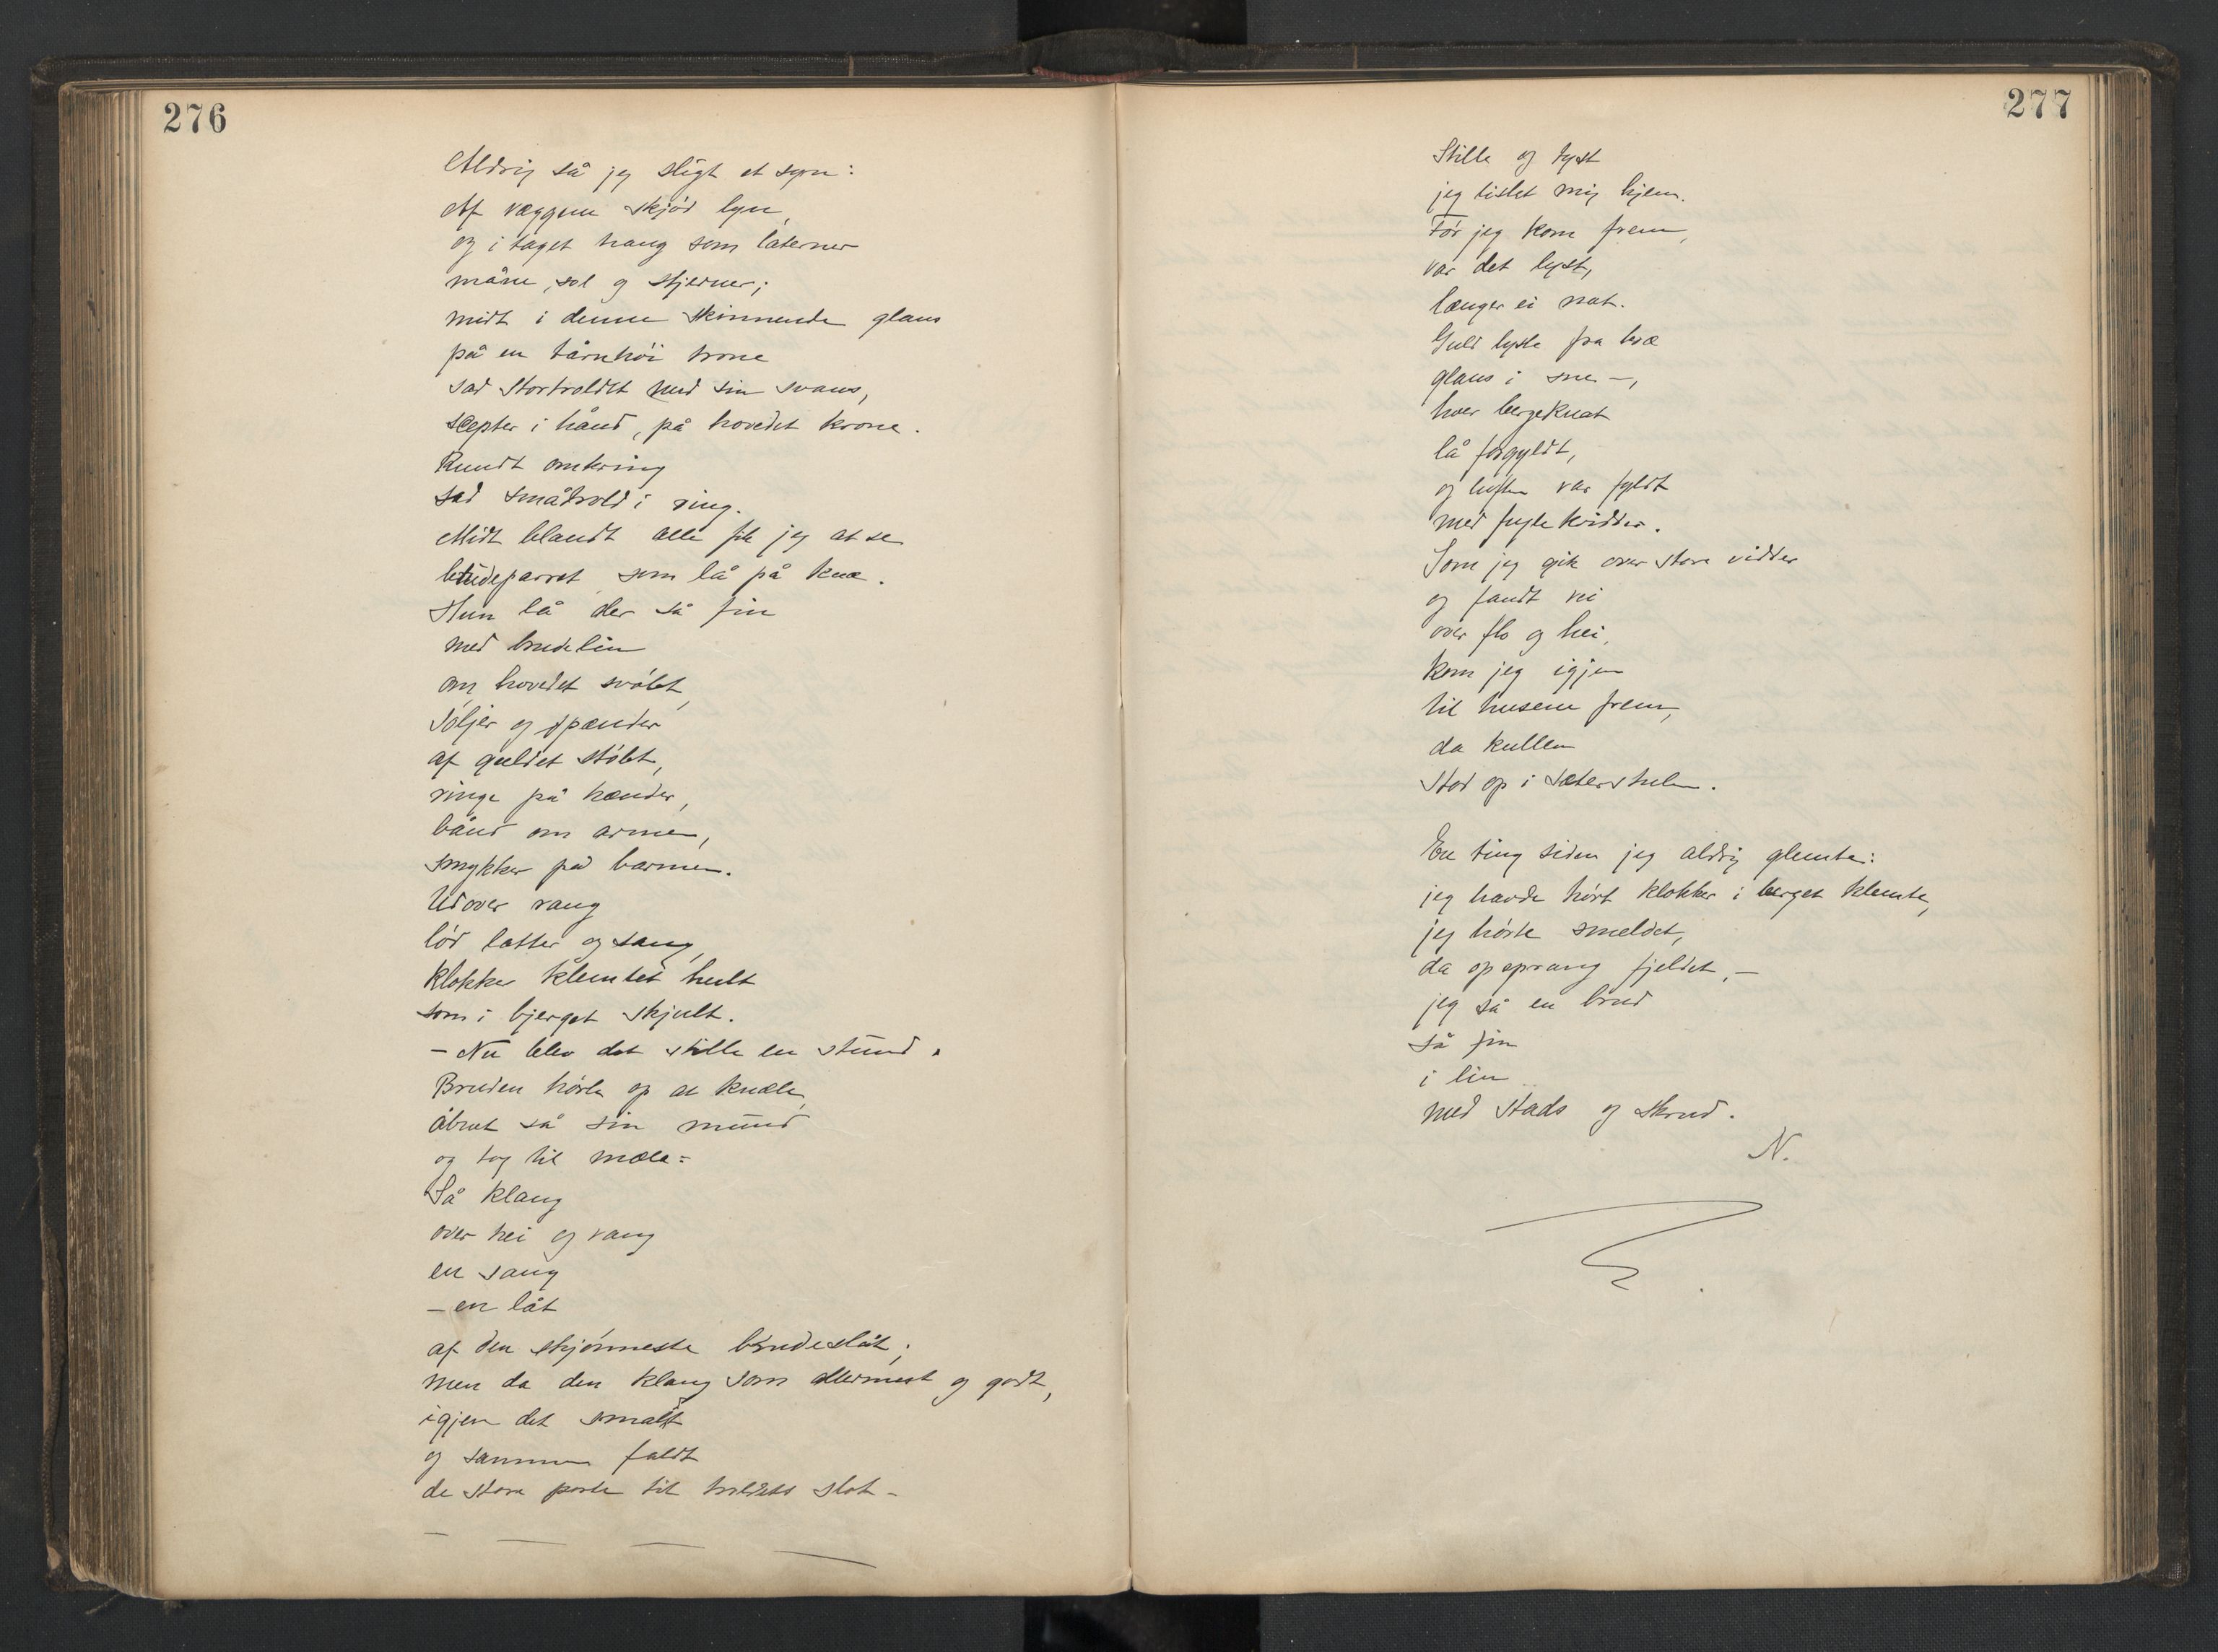 276
Aldrig så jeg sligt et syn:
Af væggene skjød lyn,
og i taget hang som laterner
måne, sol og stjerner;
midt i denne skinnende glans
på en tårnhøi trone
sad stortroldet med sin svans,
scepter i hånd, på hovedet krone.
Rundt omkring
sad småtrold i ring.
Midt blandt alle fik jeg at se
brudeparret som lå på knæ.
Hun lå der så fin
med brudelin
om hovedet svøbt,
søljer og spænder
af guldet støbt,
ringe på hænder,
bånd om armen,
smykker på barmen.
Udover vang
lød latter og sang,
klokker klemtet hult
som i bjerget skjult.
– Nu blev det stille en stund.
Bruden hørte op at knæle,
åbnet så sin mund
og tog til mæle:
Så klang
over hei og vang
en sang
– en låt
af den skjønneste brudeslåt;
men da den klang som allermest og godt,
igjen det smalt
og sammen faldt
de store porte til troldets slot –
— — — —
277
Stille og tyst
jeg listet mig hjem.
Før jeg kom frem,
var det lyst,
længer ei nat.
Guld lyste fra træ
glans i sne –,
hver bergeknat
lå forgyldt,
og luften var fyldt
med fuglekvidder.
Som jeg gik over store vidder
og fandt vei
over flo og hei,
kom jeg igjen
til husene frem,
da kullen
stod op i sæterstulen.
En ting siden jeg aldrig glemte:
jeg havde hørt klokker i berget klemte,
jeg hørte smeldet,
da opsprang fjeldet, –
jeg så en brud
så fin
i lin
med stads og skrud.
N.